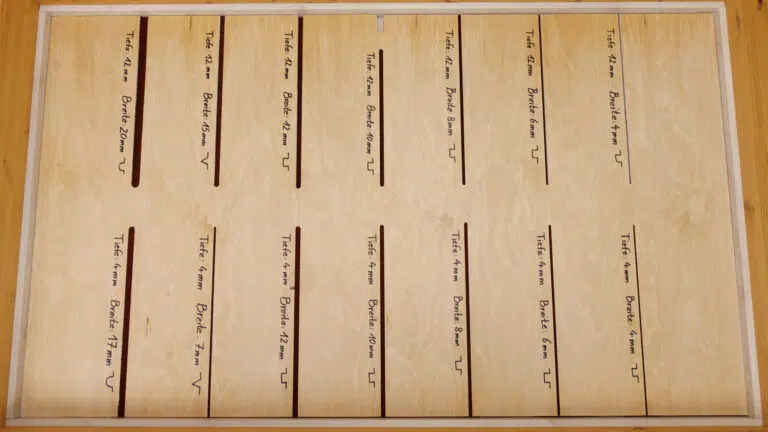 Tiefe: 12 mm Breite: 20mm
Tiefe: 12 mm Breite: 15mm
Tiefe: 12mm Breite: 12 mm
Tiefe: 12mm Breite: 10mm
Tiefe: 12 mm Breite 8mm
Tiefe: 12 mm Breite: 6mm
Tiefe: 12 mm Breite: 4mm
Tiefe: 4mm Breite: 17mm
Tiefe: 4mm Breite: 7mm
Tiefe: 4mm Breite: 12mm
Tiefe: 4mm Breite: 10mm
Tiefe: 4mm Breite: 8mm
Tiefe: 4mm Breite: 6mm
Tiefe: 4mm Breite: 4mm